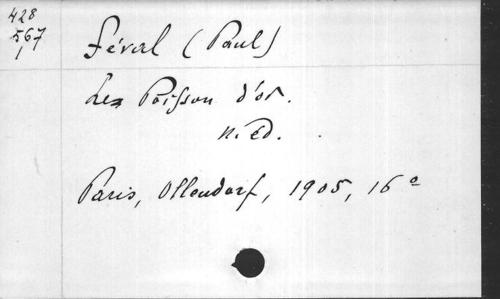 428
567
1
Féval (Paul)
Les Poisson d'or.
n. Ed.
Paris, Ollendorf, 1905, 16°